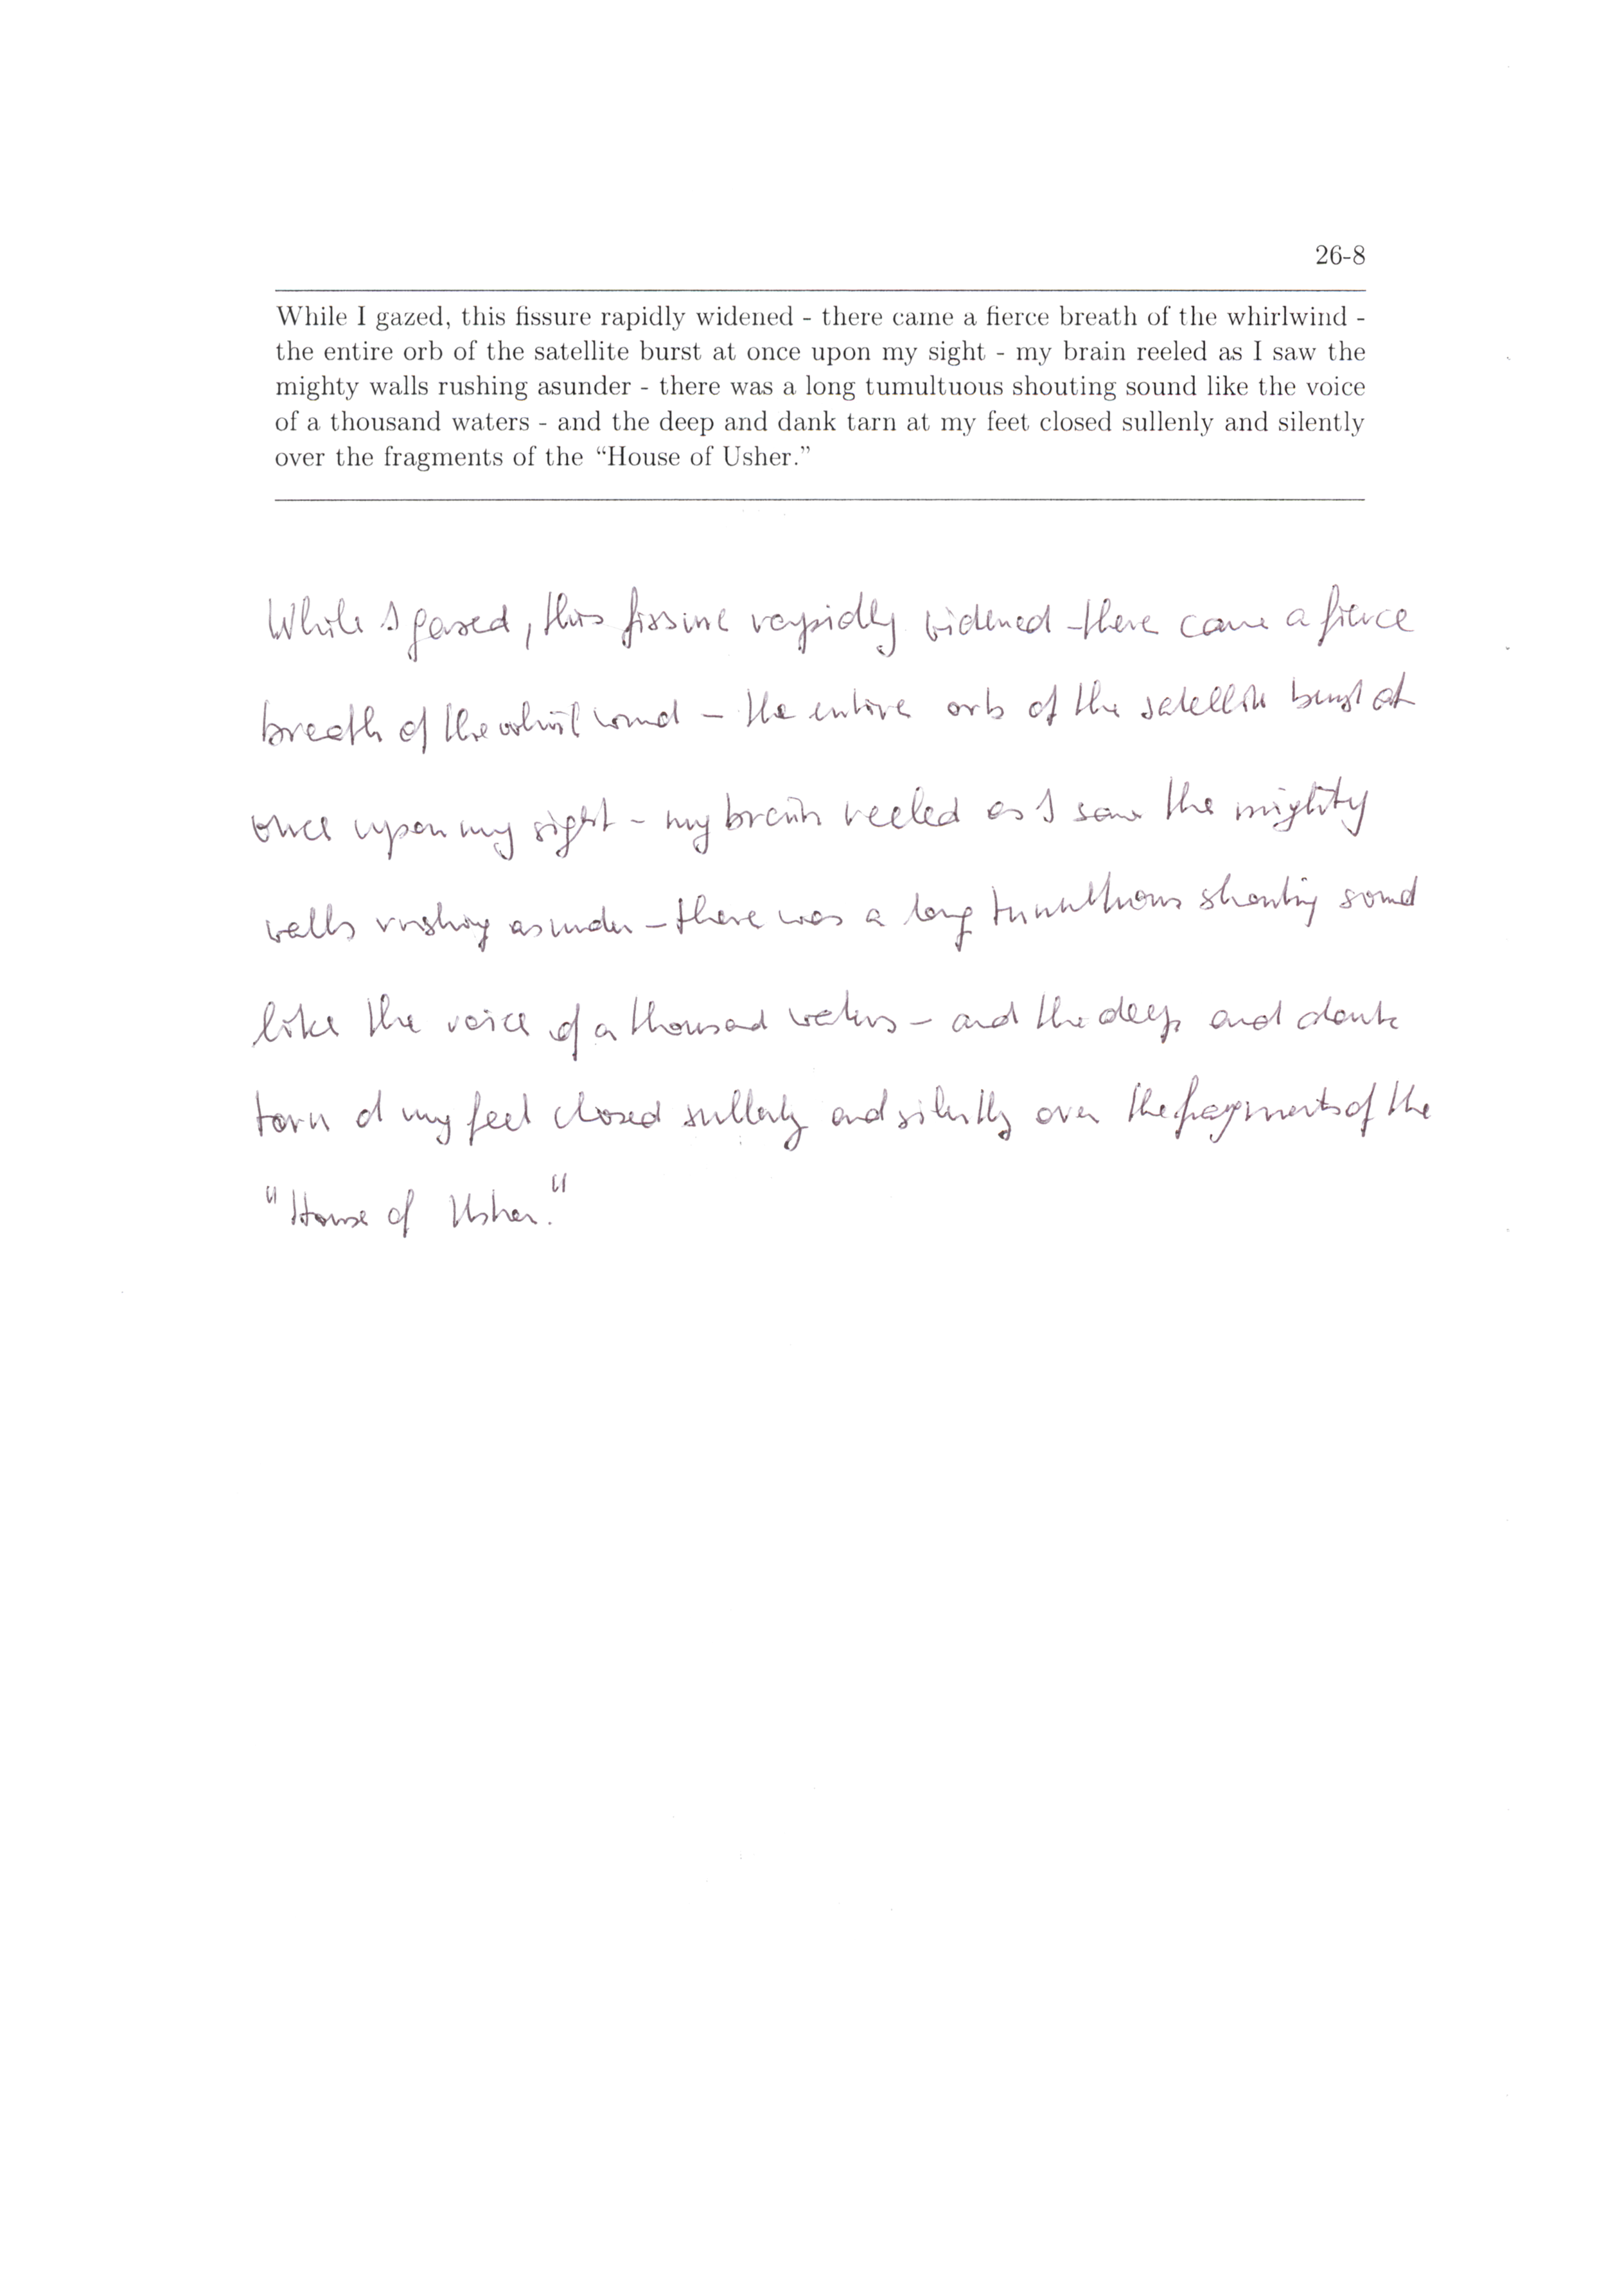 26-8
While I gazed, this fissure rapidly widened - there came a fierce breath of the whirlwind -
the entire orb of the satellite burst at once upon my sight - my brain reeled as I saw the
mighty walls rushing asunder - there was a long tumultuous shouting sound like the voice
of a thousand waters - and the deep and dank tarn at my feet closed sullenly and silently
over the fragments of the “House of Usher.”
While I gazed, this fissure rapidly widened - there came a fierce
breath of the whirlwind - the entire orb of the satellite burst at
once upon my sight - my brain reeled as I saw the mighty
walls rushing asunder - there was a long tumultuous shouting sound
like the voice of a thousand waters - and the deep and dank
tarn at my feet closed sullenly and silently over the fragments of the
"House of Usher."